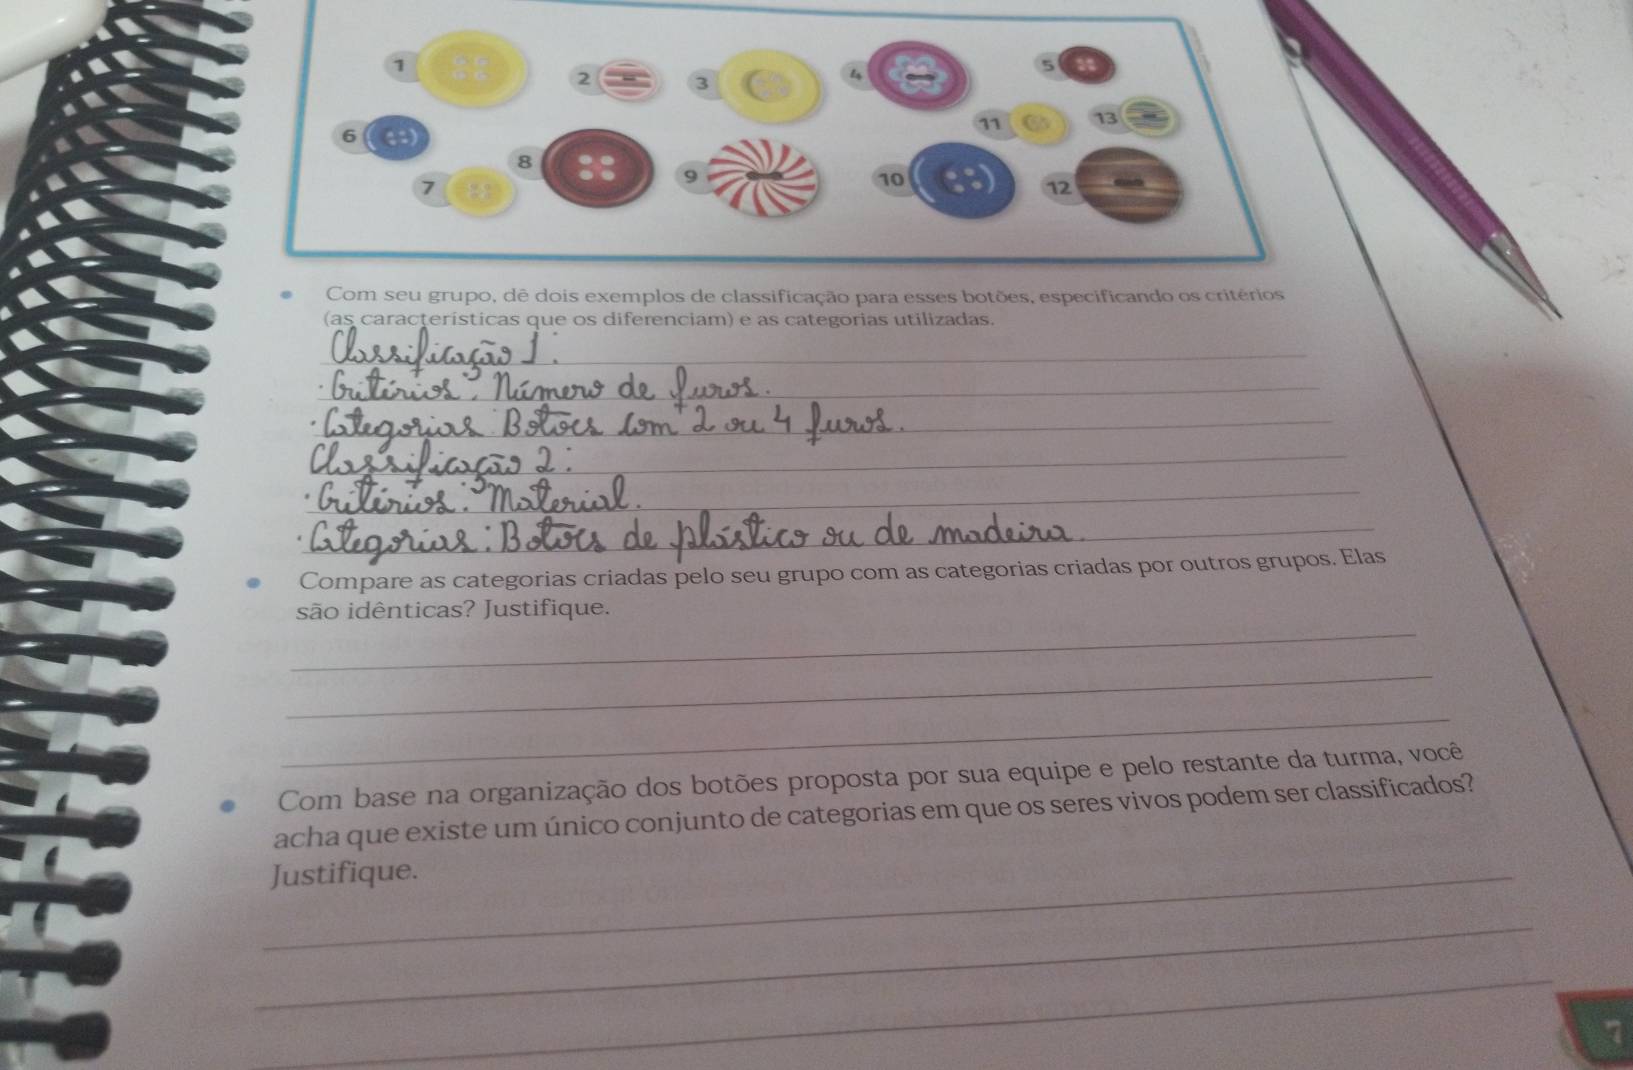 1
2
3
4
5
6
7
8
9
10
11
13
12
Com seu grupo, dê dois exemplos de classificação para esses botões, especificando os critérios
(as características que os diferenciam) e as categorias utilizadas.
Classificação 1:
· Critérios: Número de furos.
· Categorias: Botões com 2 ou 4 furos.
Classificação 2:
· Critérios: Material.
· Categorias: Botões de plástico ou de madeira.
Compare as categorias criadas pelo seu grupo com as categorias criadas por outros grupos. Elas
são idênticas? Justifique.
Com base na organização dos botões proposta por sua equipe e pelo restante da turma, você
acha que existe um único conjunto de categorias em que os seres vivos podem ser classificados?
Justifique.
7